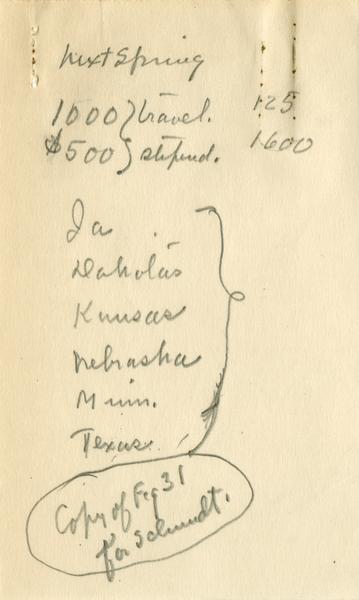 Next Spring
1000 } travel. 125
$500 } stipend. 1600
Ia.
Dakotas
Kansas
Nebraska
Minn.
Texas.
Copy of Fig 31
for Schmidt.